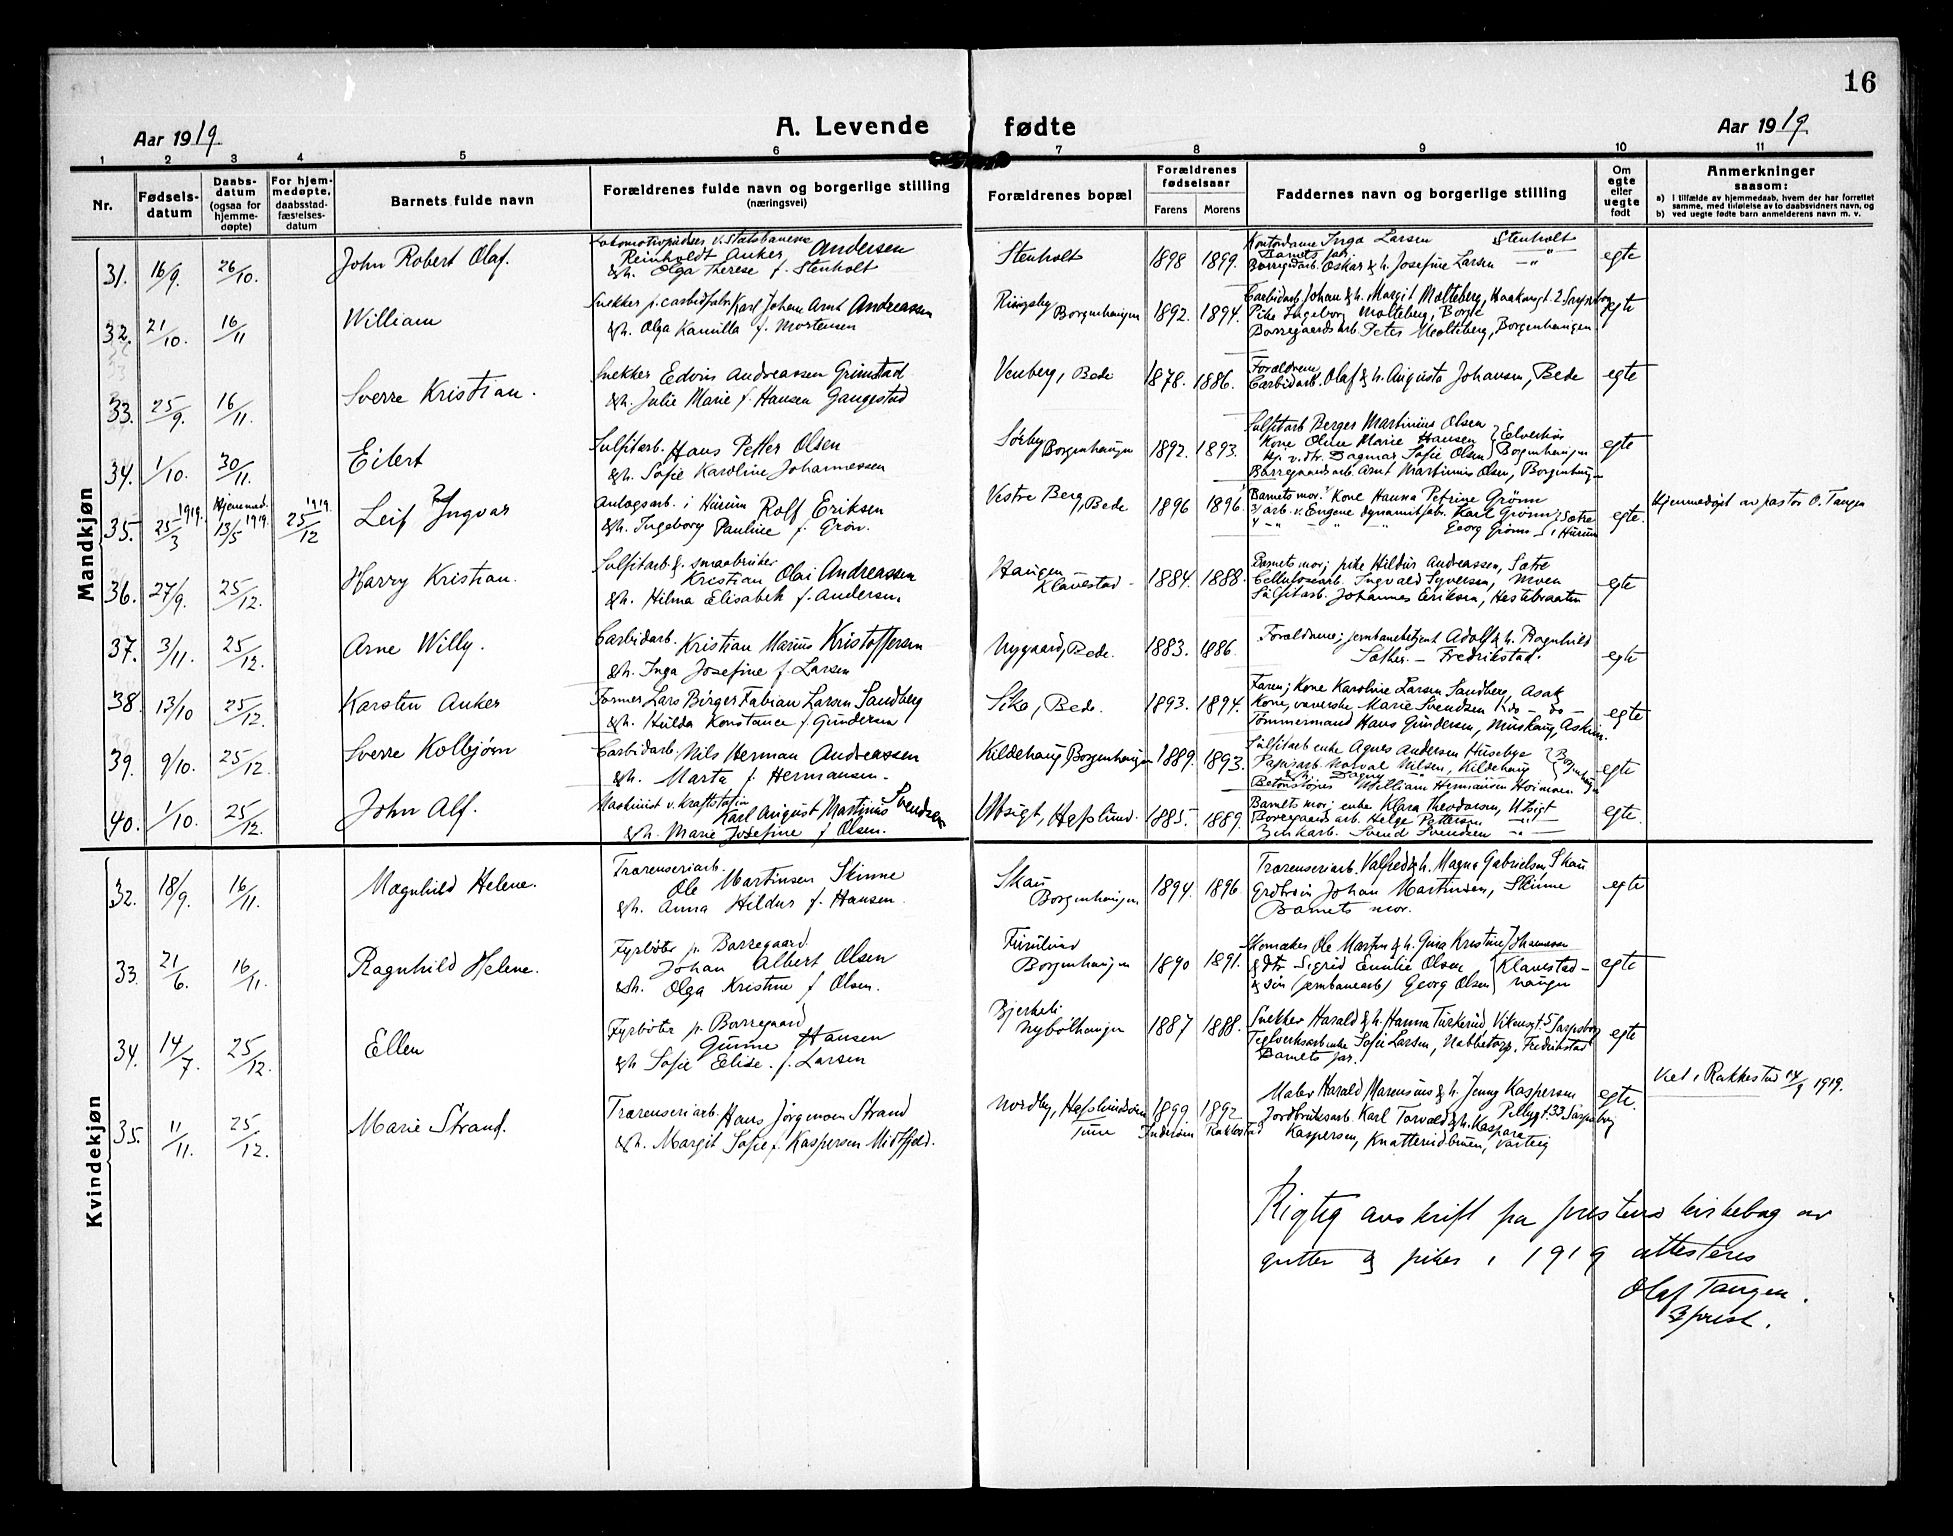 16
Aar 1919.
A. Levende fødte
Aar 1919
1 2 3 4 5 6 7 8 9 10 11
Nr.
Fødsels-
datum
Daabs-
datum
(ogsaa for
hjemme-
døpte)
For hjem-
medøpte,
daabsstad-
fæstelses-
datum
Barnets fulde navn
Forældrenes fulde navn og borgerlige stilling
(næringsvei)
Forældrenes bopæl
Forældrenes
fødselsaar
Farens
Morens
Faddernes navn og borgerlige stilling
Om
egte
eller
uegte
født
Anmerkninger
saasom:
a) I tilfælde av hjemmedaab, hvem der har forrettet
samme, med tilføielse av to daabsvidners navn, og
b) ved uegte fødte barn anmelderens navn m. v.
Mandkjøn
31. 16/9. 26/10. John Robert Olaf.
Lokomotivpudser v. Statsbanene
Reinholdt Anker Andersen
& h. Olga Therese f. Stenholt
Stenholt 1898 1899.
Kontordame Inga Larsen Stenholt
Barnets far.
Borregaardsarb. Oskar & h. Josefine Larsen —"—
egte
32. 21/10. 16/11 William
Snekker p. carbidfabr. Karl Johan Arnt Andreassen
& h. Olga Kamilla f. Mortensen
Ringsby Borgenhaugen 1892. 1894.
Carbidarb. Johan & h. Margit Molteberg, Haakonsgt. 2 Sarpsborg
Pike Ingeborg Molteberg, Borge
Borregaardsarb. Peter Molteberg, Borgenhaugen
egte
33. 25/9. 16/11. Sverre Kristian.
Snekker Edvin Andreassen Grimstad
& h. Julie Marie f. Hansen Gangestad
Venberg, Bede 1878. 1886.
Forældrene,
Carbidarb. Olaf & h. Augusta Johansen, Bede
egte
34. 1/10. 30/11. Eilert
Sulfitarb. Hans Petter Olsen
& h. Sofie Karoline Johannessen
Sørby Borgenhaugen 1892. 1893.
Sulfitarb Berger Martinius Olsen
Kone Oline Marie Hansen
Hj. v. dtr. Dagmar Sofie Olsen Borgenhaugen
Borregaardsarb. Arnt Martinius Olsen, Borgenhaug—
egte
35. 25/3 1919. Hjemmed. 13/5 1919. 25/12 1919. Leif Ingvar
Anlagsarb. i Hurum Rolf Eriksen
& h. Ingeborg Pauline f. Grøn.
Vestre Berg, Bede 1896 1896
Barnets mor. Kone Hanna Petrine Grønn
arb. v. Engene dynamitfabr. Karl Grønn
Georg Grønn Sætre i Hurum
egte.
Hjemmedøpt av pastor O. Tangen
36. 27/9. 25/12. Harry Kristian.
Sulfitarb. & smaabruker
Kristian Olai Andreassen
& h. Hilma Elisabeth f. Andersen
Haugen Klavestad— 1884. 1888.
Barnets mor; pike Hildur Andreassen, Sætre
Cellulosearb. Ingvald Syversen, Moen
Sulfitarb. Johannes Eriksen, Hestebraaten
egte
37. 3/11. 25/12. Arne Willy.
Carbidarb. Kristian Marius Kristoffersen
& h. Inga Josefine f. Larsen
Nygaard, Bede. 1883. 1886.
Forældrene; jernbanebetjent Adolf & h. Ragnhild
Sæther. — Fredrikstad.
egte
38. 13/10 25/12. Karsten Anker
Former Lars Birger Fabian Larsen Sandberg
& h. Hulda Konstance f. Gundersen
Sike, Bede. 1893. 1894.
Faren; Kone Karoline Larsen Sandberg, Asak
Kone, væverske Marie Svendsen —do—
Tømmermand Hans Gundersen, Askim.
egte
39. 9/10. 25/12. Sverre Kolbjørn
Carbidarb. Nils Herman Andreassen
& h. Marta f. Hermansen.
Kildehaug, Borgenhaugen 1889. 1893.
Sulfitarb enke Agnes Andersen Husebye
Papirarb. Norval Nilsen, Kildehaug
& h. Dagny —"—
Betonstøper William Hermansen Hoimoen
egte
40. 1/10. 25/12. John Alf.
Maskinist v. Kraftstation
Karl August Martinius Svendsen
& h. Marie Josefine f Olsen.
Utsigt, Hafslund. 1885. 1889.
Barnets mor; enke Klara Theodorsen, Utsigt
Borregaardsarb. Helge Pettersen —"—
Zinkarb. Svend Svendsen —"—
egte.
Kvindekjøn
32. 18/9. 16/11. Magnhild Helene.
Træsenseriarb.
Ole Martinsen Skinne
& h. Anna Hildur f. Hansen.
Skau Borgenhaugen 1894. 1896.
Træsenseriarb. Valfred & h. Magna Gabrielsen, Skau
Grdbr.søn Johan Martinsen, Skinne
Barnets mor.
egte
33. 21/6. 16/11. Ragnhild Helene.
Fyrbøter p. Borregaard
Johan Albert Olsen
& h. Olga Kristine f Olsen.
Borgenhaugen 1890 1891.
Skomaker Ole Martin & h. Gina Kristine Johannessen
& dtr Sigrid Emilie Olsen
& søn (jernbanearb) Georg Olsen Klavestad—haugen
egte
34. 14/7. 25/12. Ellen
Fyrbøter p. Borregaard
Gunne Hansen
& h. Sofie Elise. f. Larsen
Bjerkeli Nybølhaugen 1887 1888.
Snekker Harald & h. Hanna Turkerud, Vikensgt. 5 Sarpsborg
Teglverksarb enke Sofie Larsen, Nabbetorp, Fredrikstad
Barnets far.
egte
35. 11/11. 25/12. Marie Strand.
Træsenseriarb. Hans Jørgensen Strand
& h. Margit Sofie f. Kaspersen Midtfjeld.
Nordby, Hafslundsøen Tune 1899 Inderøen 1892 Rakkestad
Maler Harald Marensius & h. Jenny Kaspersen
Jordbruksarb. Karl Torvald & h. Kaspara Pellygt. 33 Sarpsborg
Kaspersen, Knatterudbruen, Varteig
egte.
Viet i Rakkestad 14/9 1919.
Rigtig avskrift fra prestens kirkebog av
gutter og piker i 1919 attesteres
Olaf Tangen.
prest.